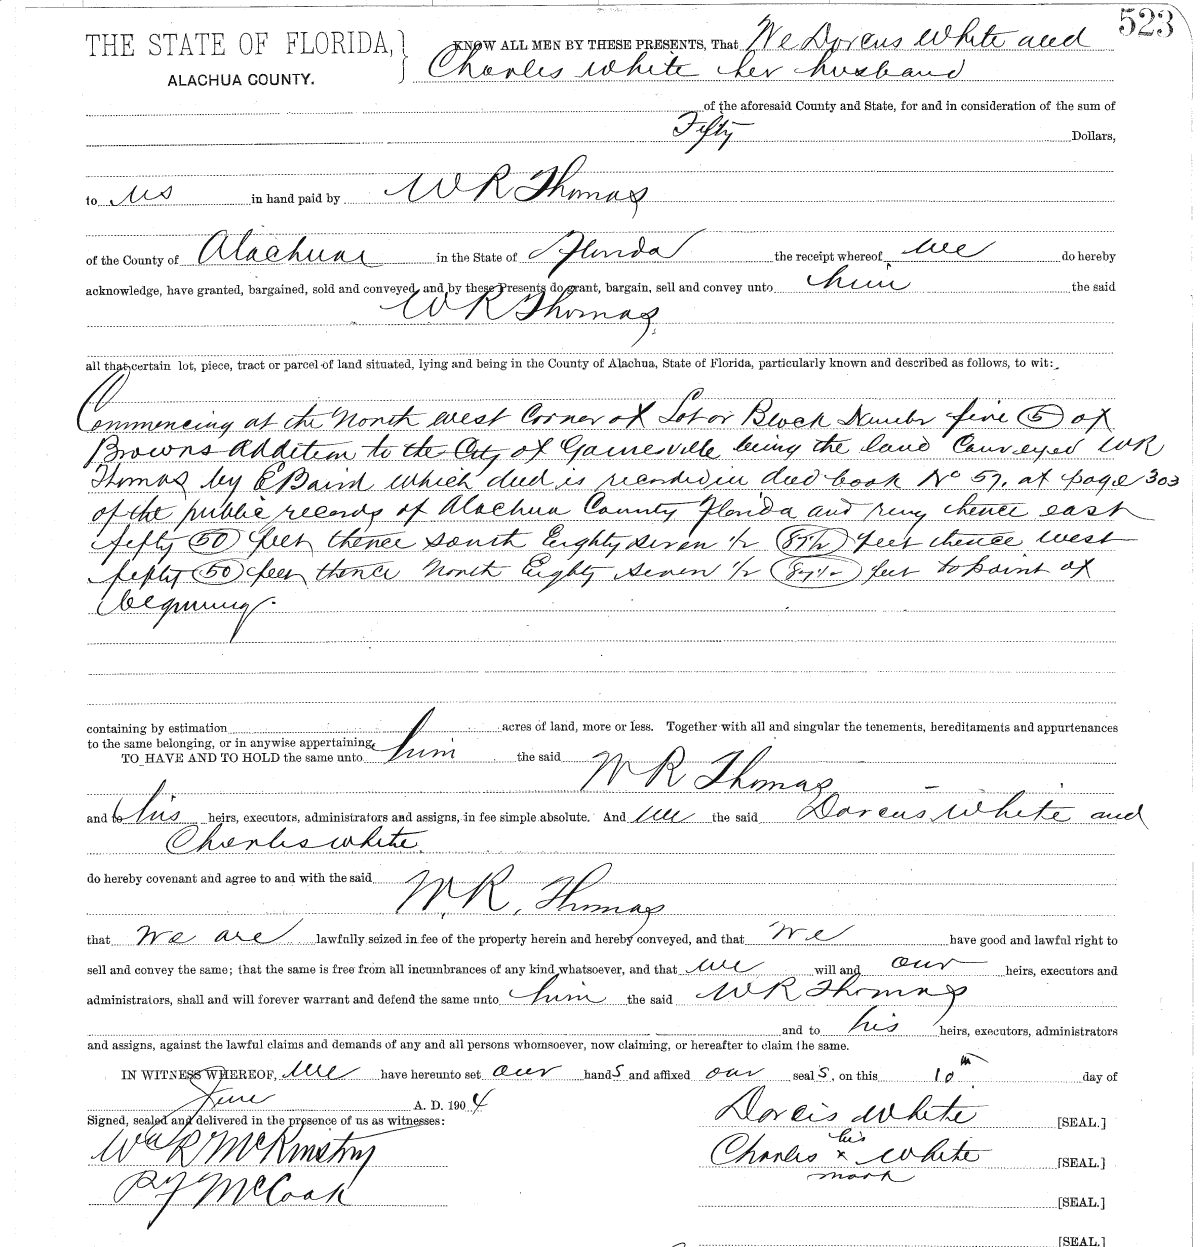 523
THE STATE OF FLORIDA, } KNOW ALL MEN BY THESE PRESENTS, That We Dorcus White and
ALACHUA COUNTY. Charles White her husband
of the aforesaid County and State, for and in consideration of the sum of
Fifty Dollars,
to us in hand paid by W R Thomas
of the County of Alachua in the State of Florida the receipt whereof we do hereby
acknowledge, have granted, bargained, sold and conveyed, and by these Presents do grant, bargain, sell and convey unto him the said
W R Thomas
all that certain lot, piece, tract or parcel of land situated, lying and being in the County of Alachua, State of Florida, particularly known and described as follows, to wit:
Commencing at the North West Corner of Lot or Block Number five (5) of
Browns Addition to the City of Gainesville being the land Conveyed WR
Thomas by E Baird which deed is recorded in deed book No 57, at page 303
of the public records of Alachua County Florida and run thence east
fifty (50) feet thence south Eighty seven 1/2 (87 1/2) feet thence west
fifty (50) feet thence North Eighty seven 1/2 (87 1/2) feet to point of
beginning.
containing by estimation acres of land, more or less. Together with all and singular the tenements, hereditaments and appurtenances
to the same belonging, or in anywise appertaining,
TO HAVE AND TO HOLD the same unto him the said W R Thomas
and to his heirs, executors, administrators and assigns, in fee simple absolute. And we the said Dorcus White and
Charles White
do hereby covenant and agree to and with the said W. R. Thomas
that We are lawfully seized in fee of the property herein and hereby conveyed, and that We have good and lawful right to
sell and convey the same; that the same is free from all incumbrances of any kind whatsoever, and that we will and our heirs, executors and
administrators, shall and will forever warrant and defend the same unto him the said W R Thomas
and to his heirs, executors, administrators
and assigns, against the lawful claims and demands of any and all persons whomsoever, now claiming, or hereafter to claim the same.
IN WITNESS WHEREOF, We have hereunto set our hands and affixed our seals, on this 10th day of
June A. D. 1904
Signed, sealed and delivered in the presence of us as witnesses:
Dorcis White [SEAL.]
Wm R McKinstry
his
Charles x White [SEAL.]
mark
McCook
[SEAL.]
[SEAL.]